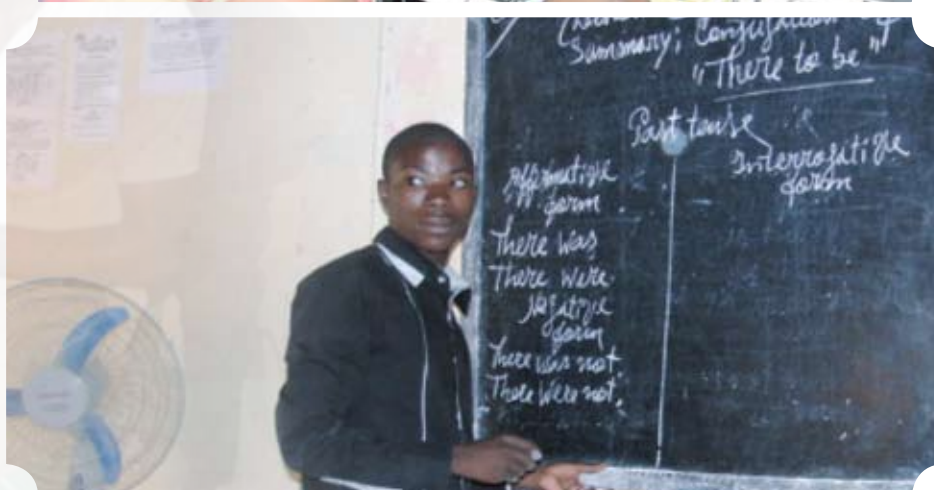 Summary; Conjugation
"There to be"
Past tense
Affirmative
form
There was
There were
Negative
form
There was not.
There were not.
Interrogative
form